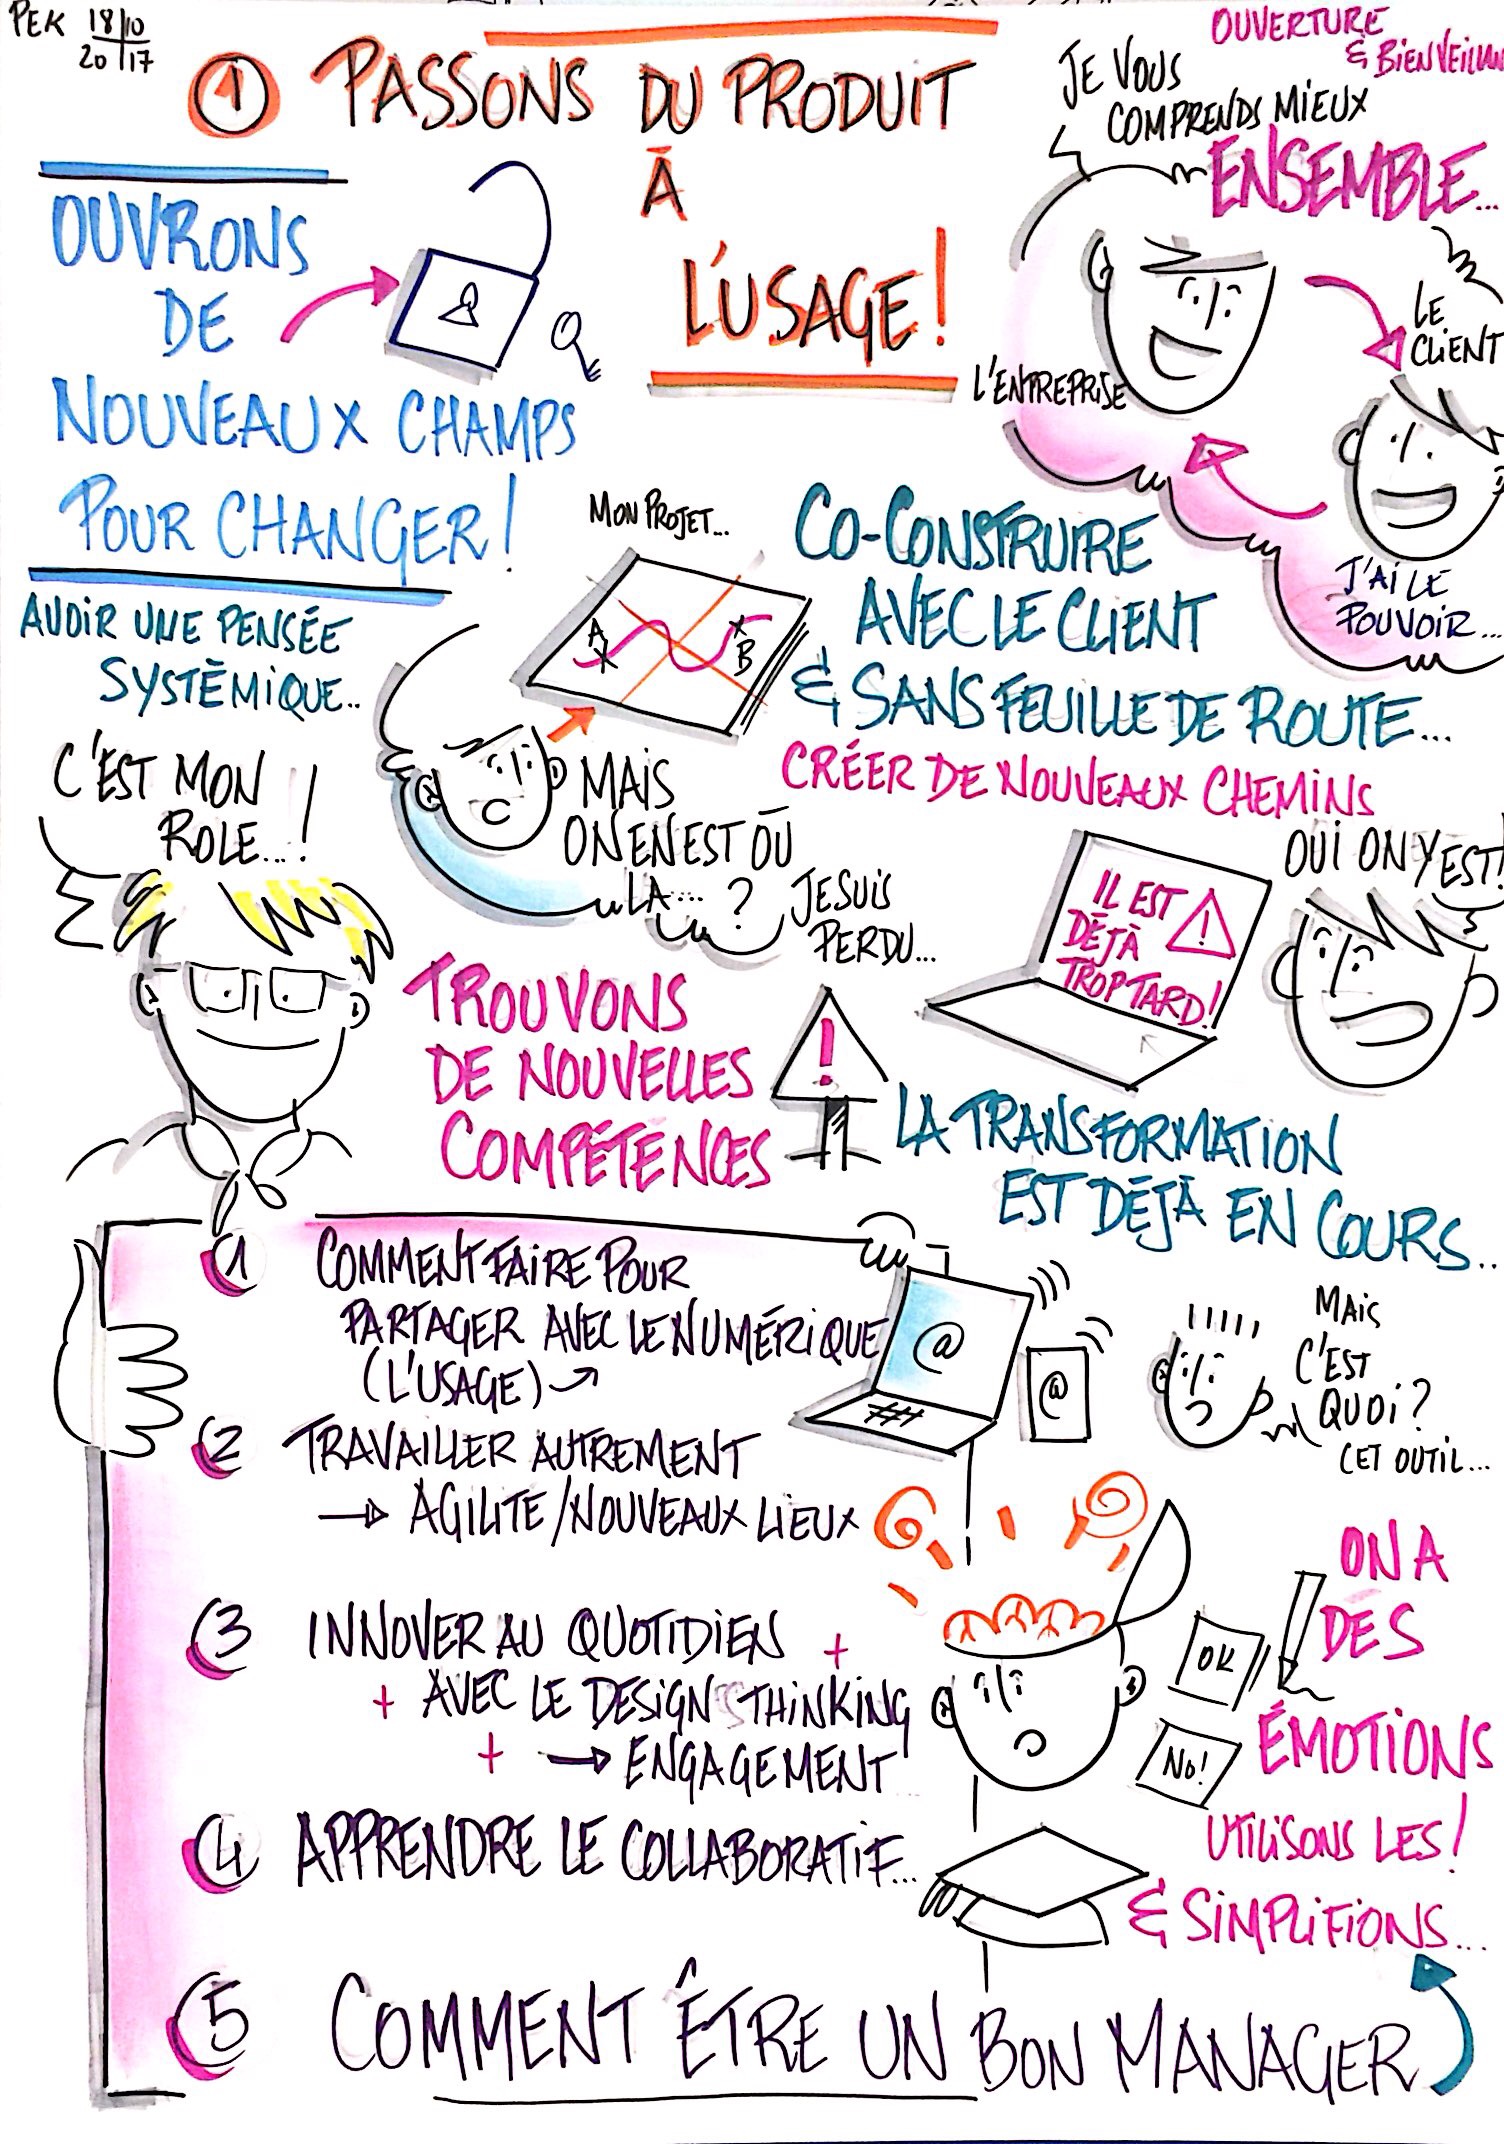 PEK 18/10
20 17
1 PASSONS DU PRODUIT
À
L'USAGE!
OUVERTURE
& BIENVEILLAN
JE VOUS
COMPRENDS MIEUX
ENSEMBLE...
OUVRONS
DE
NOUVEAUX CHAMPS
POUR CHANGER!
L'ENTREPRISE
LE
CLIENT
J'AI LE
POUVOIR...
AVOIR UNE PENSÉE
SYSTÈMIQUE..
MON PROJET...
A
B
CO-CONSTRUIRE
AVEC LE CLIENT
& SANS FEUILLE DE ROUTE...
CRÉER DE NOUVEAUX CHEMINS
C'EST MON
ROLE...!
MAIS
ON EN EST OÙ
LA...?
JE SUIS
PERDU...
IL EST
DÉJÀ
TROP TARD!
!
OUI ON Y EST!
TROUVONS
DE NOUVELLES
COMPÉTENCES
!
LA TRANSFORMATION
EST DÉJÀ EN COURS...
1 COMMENT FAIRE POUR
PARTAGER AVEC LE NUMÉRIQUE
(L'USAGE)
@
@
MAIS
C'EST
QUOI?
CET OUTIL...
2 TRAVAILLER AUTREMENT
→ AGILITE/NOUVEAUX LIEUX
3 INNOVER AU QUOTIDIEN +
+ AVEC LE DESIGN THINKING
+ → ENGAGEMENT
OK
NO!
ON A
DES
ÉMOTIONS
UTILISONS LES!
& SIMPLIFIONS...
4 APPRENDRE LE COLLABORATIF...
5 COMMENT ÊTRE UN BON MANAGER